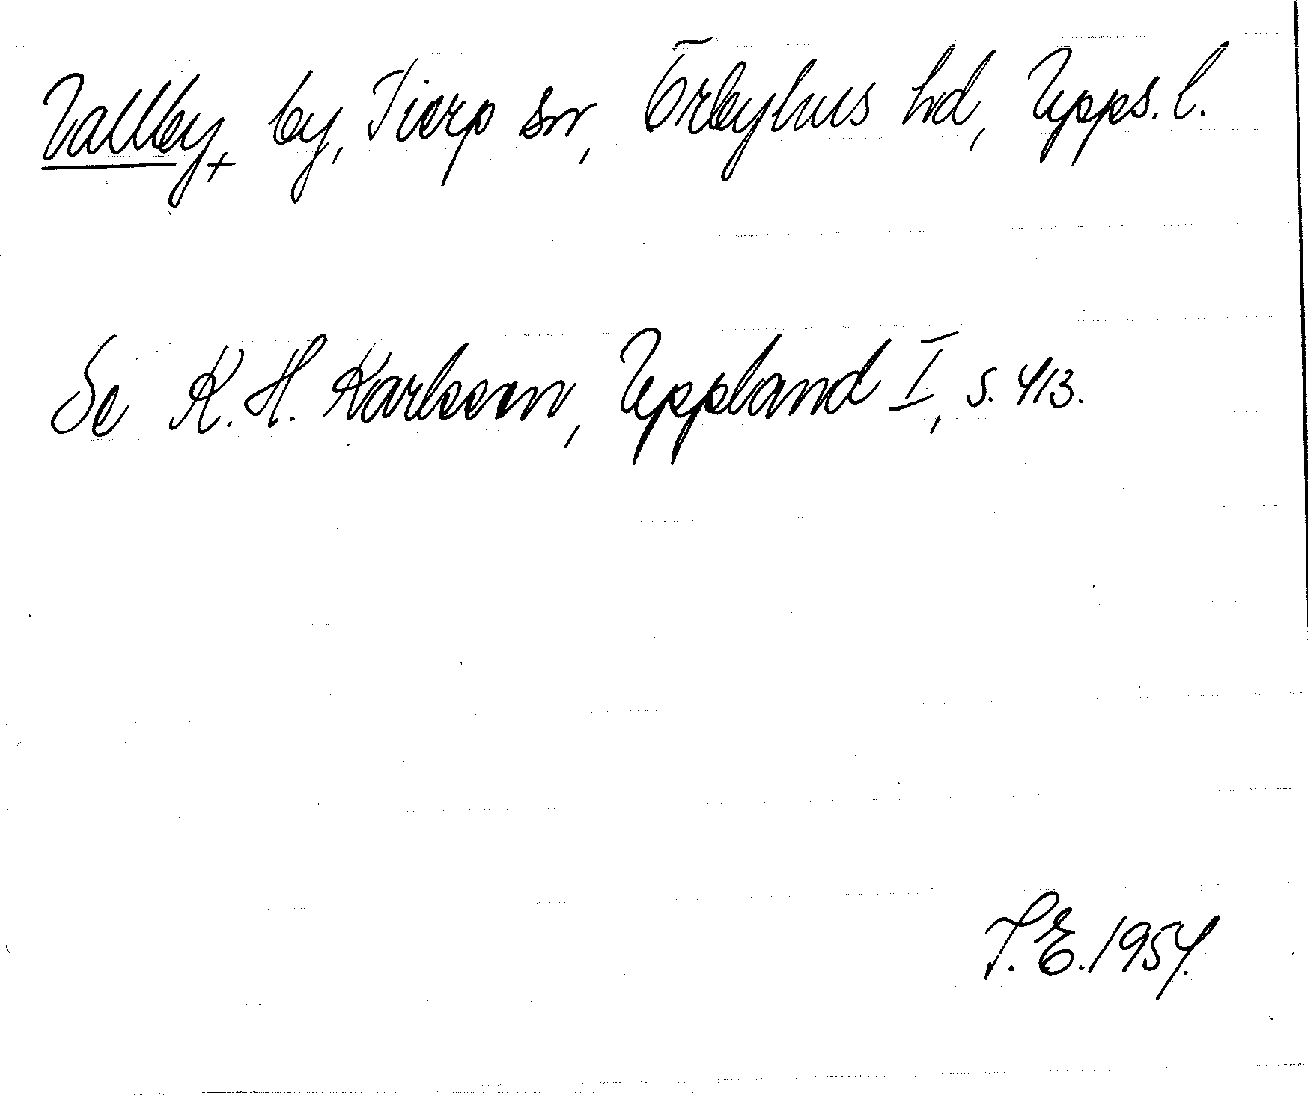 Vallby, by, Tierp sn, Örbyhus hd, Upps. l.
Se K. H. Karlsson, Uppland I, s. 413.
T. E. 1954.